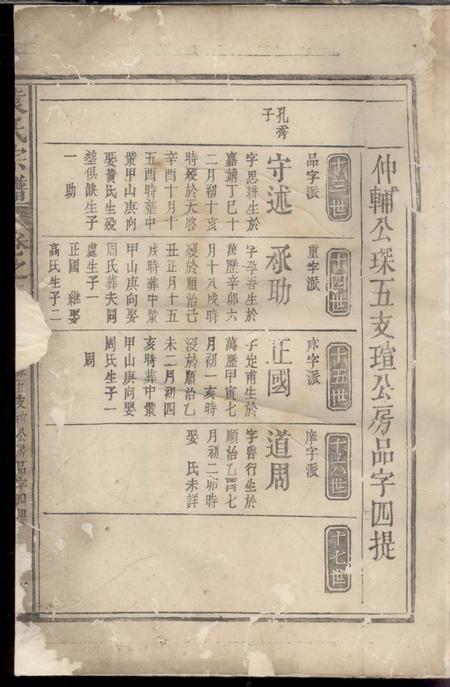 仲輔公琛五支瑄公房品字四提
十三世
品字派
孔秀
子
守述
字思耕生於
嘉靖丁巳十
二月初十亥
時歿於天啓
辛酉十月十
五酉時葬中
甲山庚向
娶黃氏生歿
葬俱缺生子
一 助
十四世
重字派
承助
字孕吾生於
萬歷辛卯六
月十八戌時
歿於順治己
丑正月十五
戌時葬中
甲山庚向娶
周氏葬夫同
處生子一
正國 繼娶
高氏生子二
十五世
序字派
正國
子定甫生於
萬歷甲寅七
月初一亥時
歿於順治乙
未二月初四
亥時葬中
甲山庚向娶
周氏生子一
周
十六世
庠字派
道周
字魯行生於
順治乙酉七
月初二卯時
娶 氏未詳
十七世
袁氏宗譜
卷之
五支瑄公房品字四提